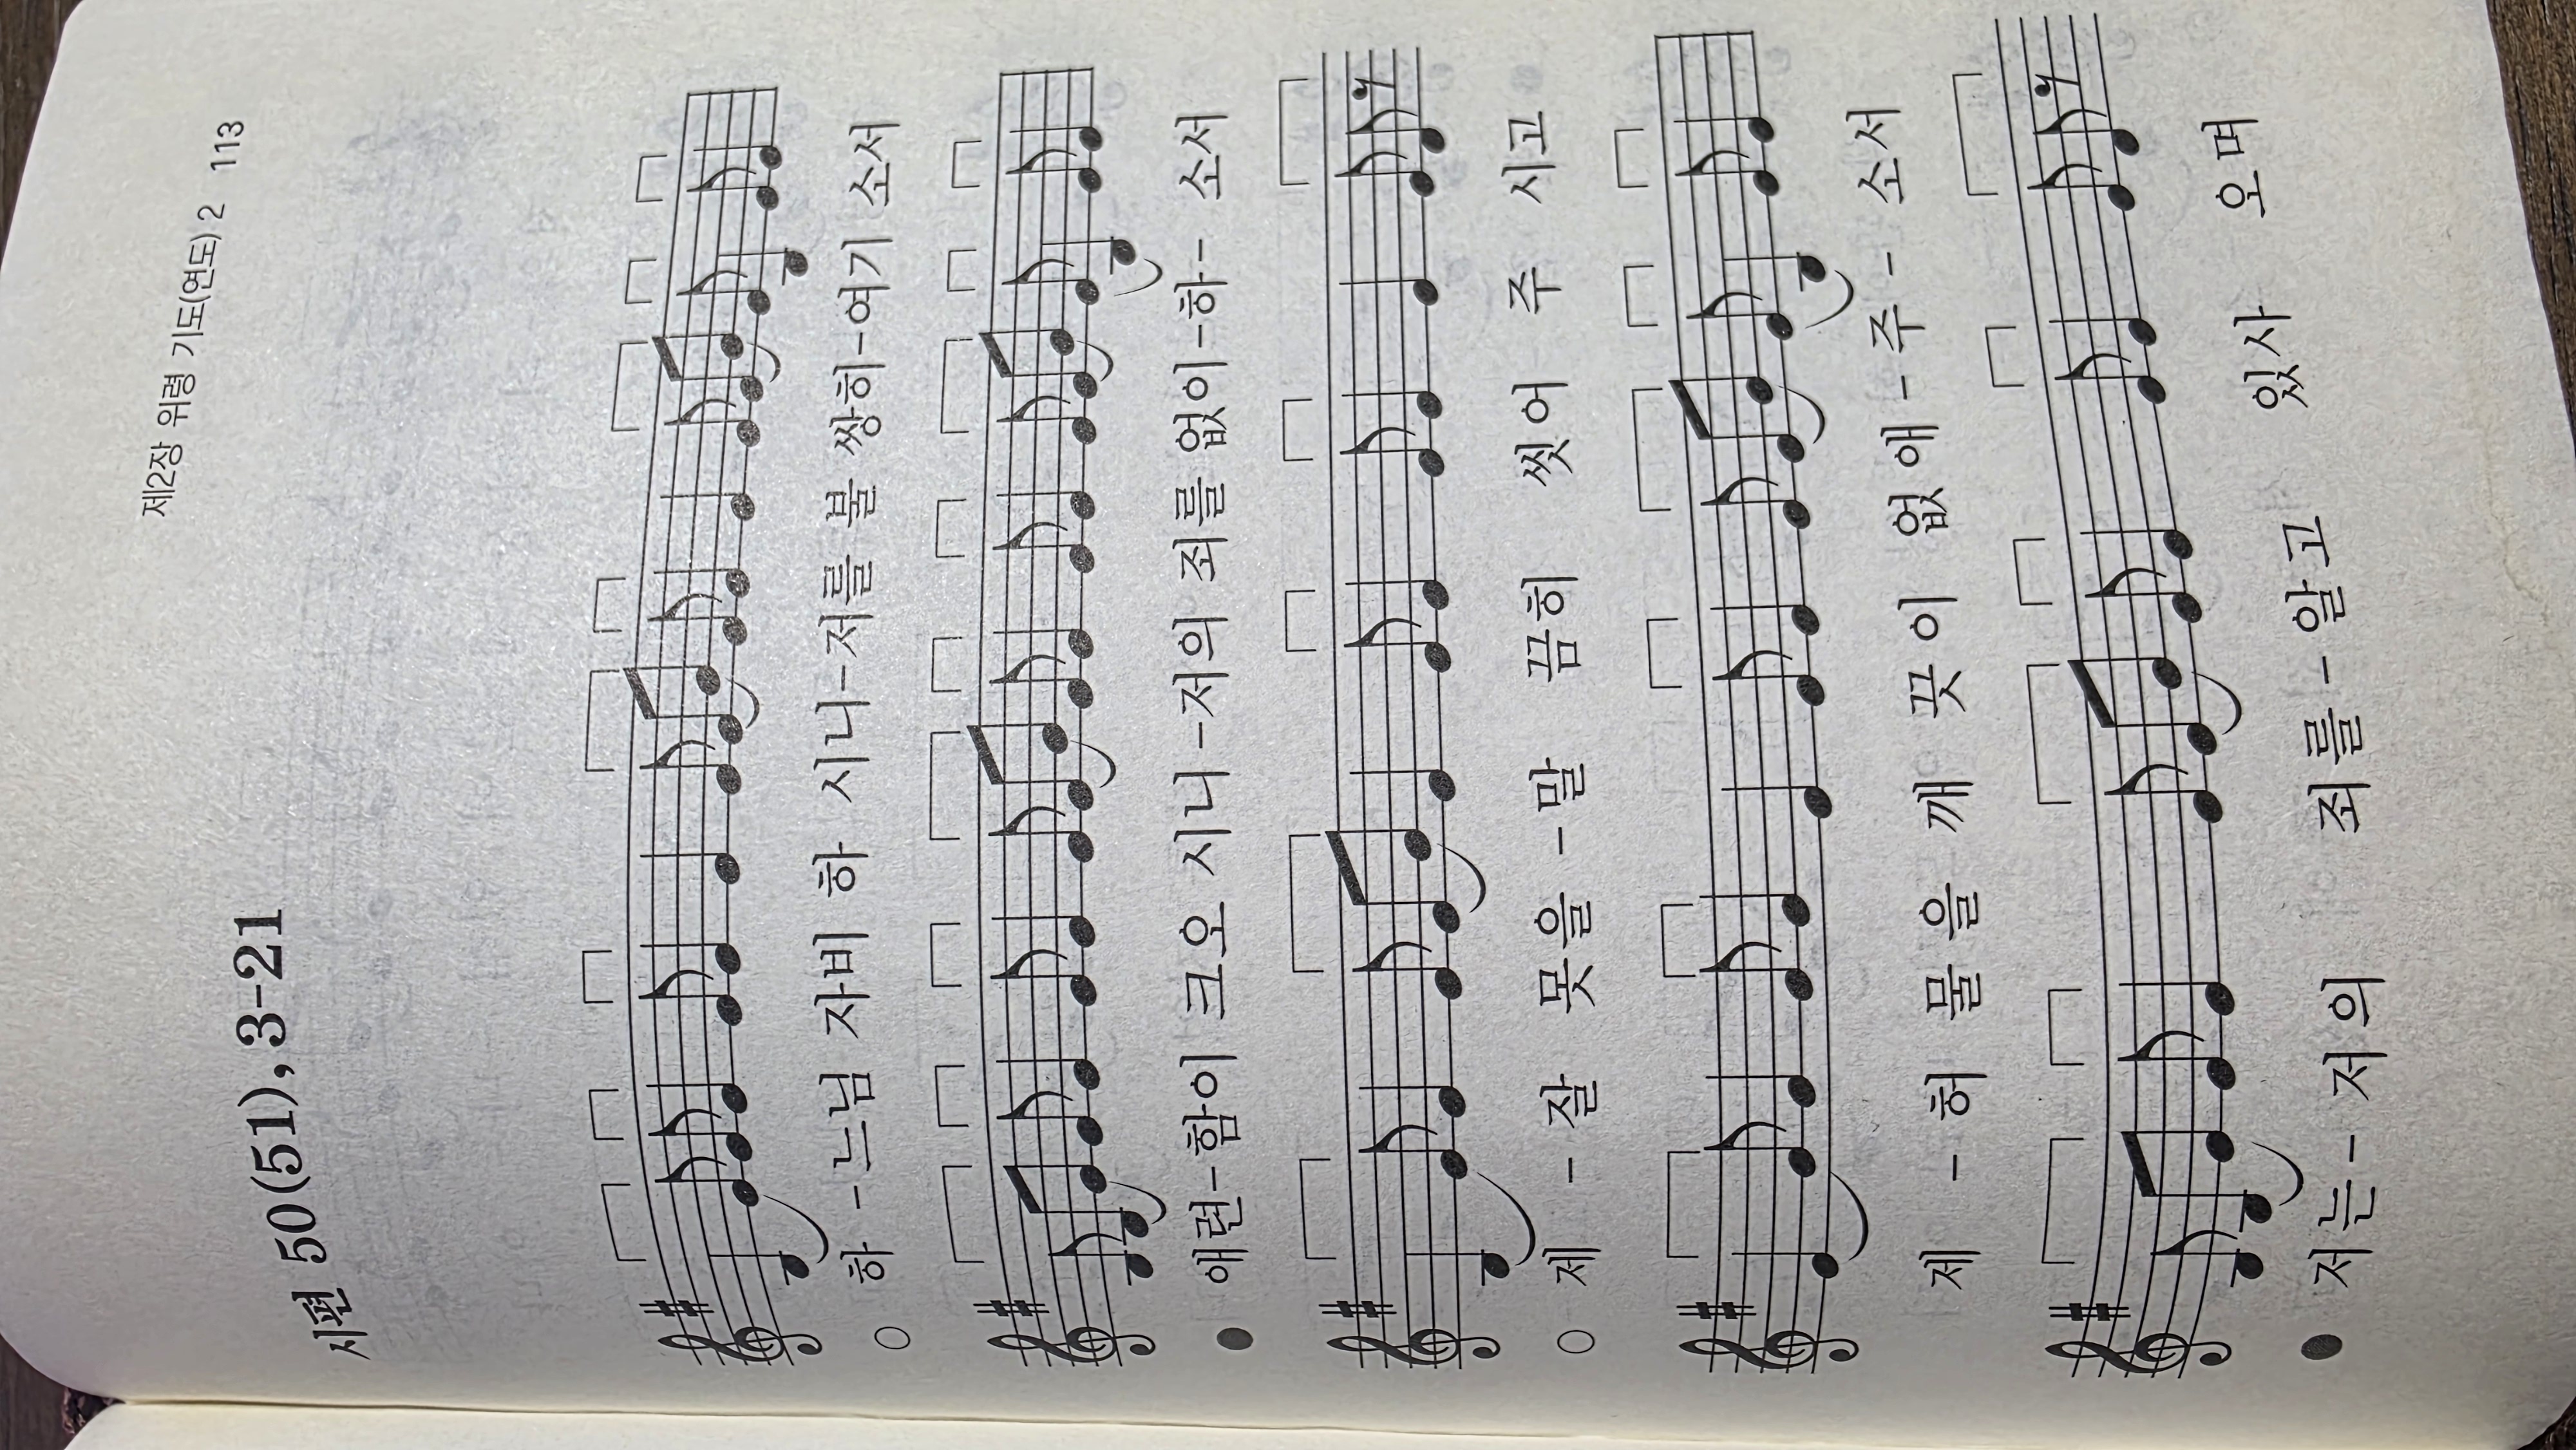 제2장 위령 기도(연도) 2 113
시편 50(51),3-21
○ 하 - 느님 자비 하 시니-저를 불 쌍히-여기 소서
● 애련-함이 크오 시니-저의 죄를 없이-하- 소서
○ 제 - 잘 못을-말 끔히 씻어 주 시고
제 - 허 물을 깨 끗이 없애-주- 소서
● 저는- 저의 죄를-알고 있사 오며